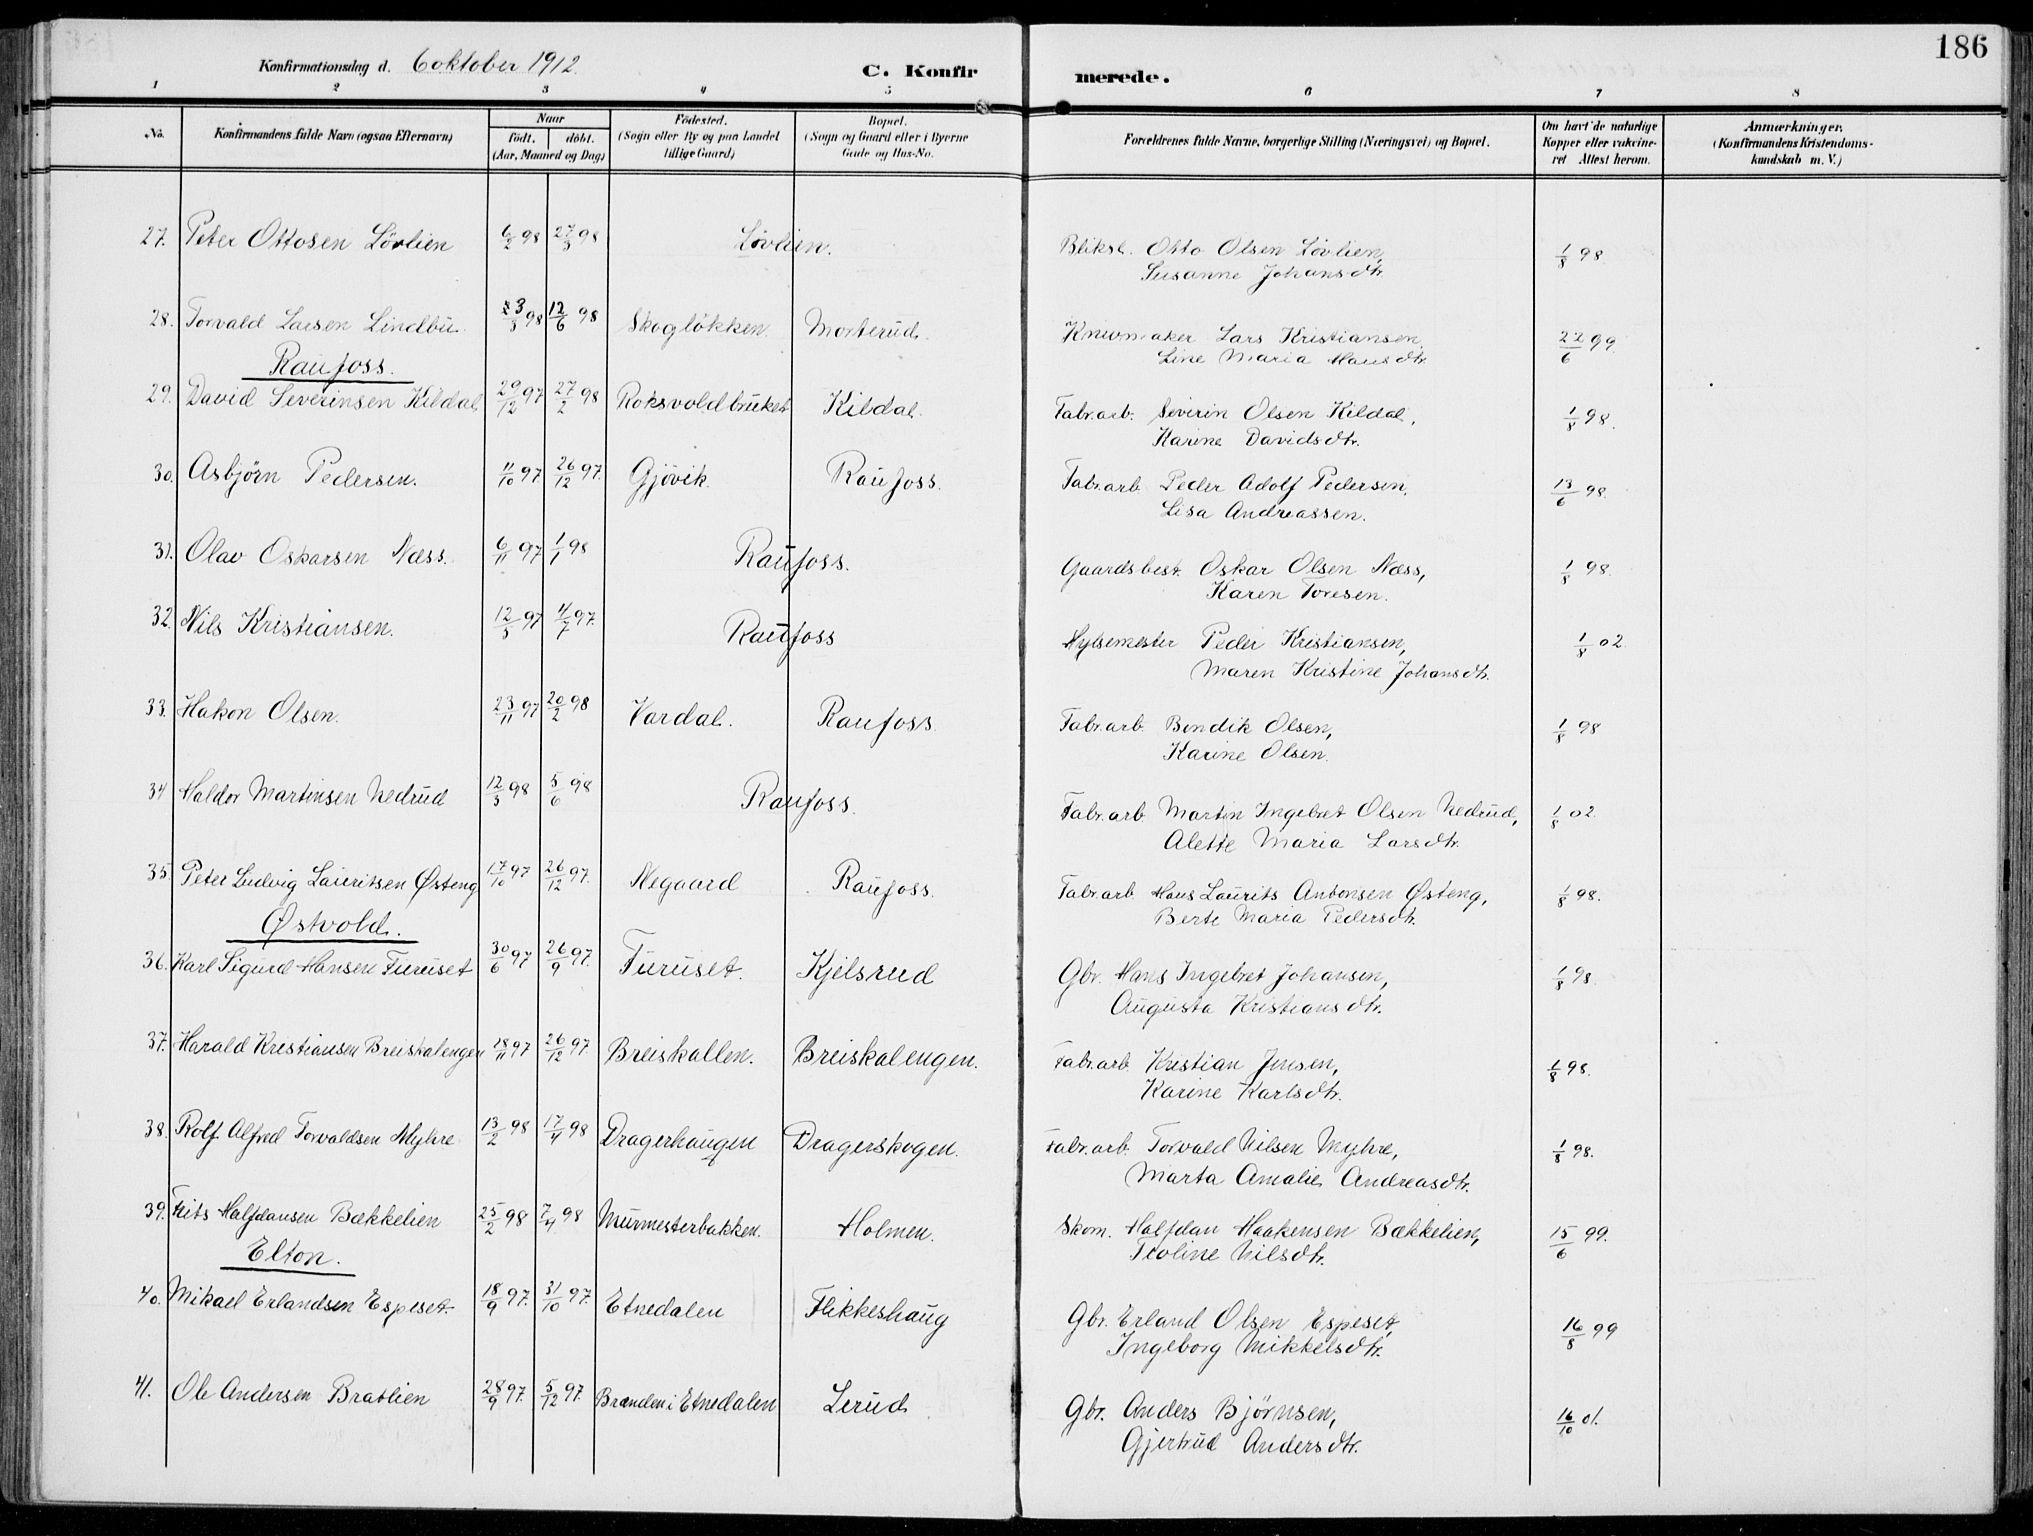 186
Konfirmationsdag d. 6 oktober 1912.
C. Konfirmerede.
1 2 3 4 5 6 7 8
No. Konfirmandens fulde Navn (ogsaa Efternavn) Naar født. døbt. (Aar, Maaned og Dag) Fødested. (Sogn eller By og paa Landet tillige Gaard) Bopæl. (Sogn og Gaard eller i Byerne Gade og Hus-No. Forældrenes fulde Navne, borgerlige Stilling (Næringsvei) og Bopæl. Om havt de naturlige Kopper eller vakcineret Attest herom. Anmærkninger. (Konfirmandens Kristendomskundskab m. V.)
27. Peter Ottosen Lövlien 6/2 98 27/3 98 Lövlien. Bliksl. Otto Olsen Lövlien, 1/8 98
Susanne Johansdtr.
28. Torvald Larsen Lindbu. 3/3 98 12/6 98 Skogløkken. Morterud. Knivmaker Lars Kristiansen, 22/6 99
Line Maria Hansdtr.
Raufoss.
29. David Severinsen Kildal 29/12 97 27/2 98 Roksvoldbruket Kildal. Fabr.arb. Severin Olsen Kildal, 1/8 98.
Karine Davidsdtr.
30. Asbjörn Pedersen. 11/10 97 26/12 97. Gjövik Raufoss. Fabr.arb. Peder Adolf Pedersen, 13/6 98.
Lisa Andreassen.
31. Olav Oskarsen Næss. 6/11 97 1/1 98 Raufoss. Gaardsbest. Oskar Olsen Næss, 1/8 98.
Karen Toresen.
32. Nils Kristiansen. 12/5 97 4/7 97. Raufoss Hylsemester Peder Kristiansen, 1/8 02.
Maren Kristine Johansdtr.
33. Hakon Olsen. 23/11 97 20/2 98 Vardal. Raufoss. Fabr.arb. Bendik Olsen, 1/8 98
Karine Olsen.
34 Haldor Martinsen Nedrud 12/3 98 5/6 98 Raufoss. Fabr.arb. Martin Ingebret Olsen Nedrud, 1/8 02.
Alette Maria Larsdtr.
35. Peter Ludvig Lauritsen Østeng 17/10 97 26/12 97. Negaard Raufoss. Fabr.arb. Hans Laurits Antonsen Østeng, 1/8 98.
Berte Maria Pedersdtr.
Østvold.
36. Karl Sigurd Hansen Furuset 30/6 97 26/9 97. Furuset. Kjelsrud Gbr. Hans Ingebret Johansen, 1/8 98.
Augusta Kristiansdtr.
37. Harald Kristiansen Breiskalengen 18/11 97 26/12 97. Breiskallen. Breiskalengen. Fabr.arb. Kristian Jensen, 1/8 98.
Karine Karlsdtr.
38. Rolf Alfred Torvaldsen Myhre 13/2 98 17/4 98 Dragerhaugen Dragerskogen. Fabr.arb. Torvald Nilsen Myhre, 1/8 98.
Marta Amalie Andreasdtr.
39. Frits Halfdansen Bækkelien 25/2 98 7/4 98 Murmesterbakken. Holmen. Skom. Halfdan Haakensen Bækkelien, 15/6 99.
Teoline Nilsdtr.
Elton.
40. Mikael Erlandsen Espeset 18/9 97. 31/10 97. Etnedalen Flikkeshaug Gbr. Erland Olsen Espeset, 16/8 99
Ingeborg Mikkelsdtr.
41. Ole Andersen Bratlien 28/9 97. 5/12 97. Branden i Etnedalen Lerud Gbr. Anders Björnsen, 16/10 01.
Gjertrud Andersdtr.